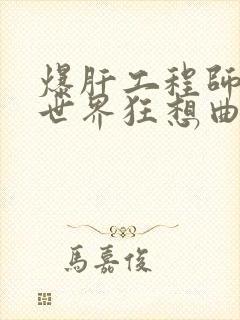 爆肝工程師
世界狂想曲
馬嘉俊